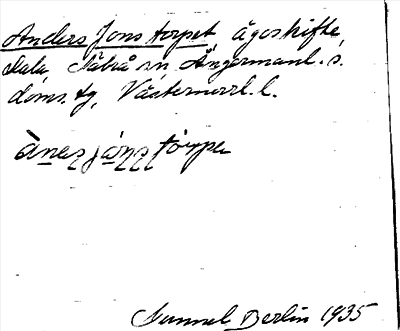 Anders Jons torpet ägoskifte,
Dala, Säbrå sn, Ångermanl. s.
doms. tg, Västernorrl. l.
ànas jànstòrpe
Gunnel Berlin 1935